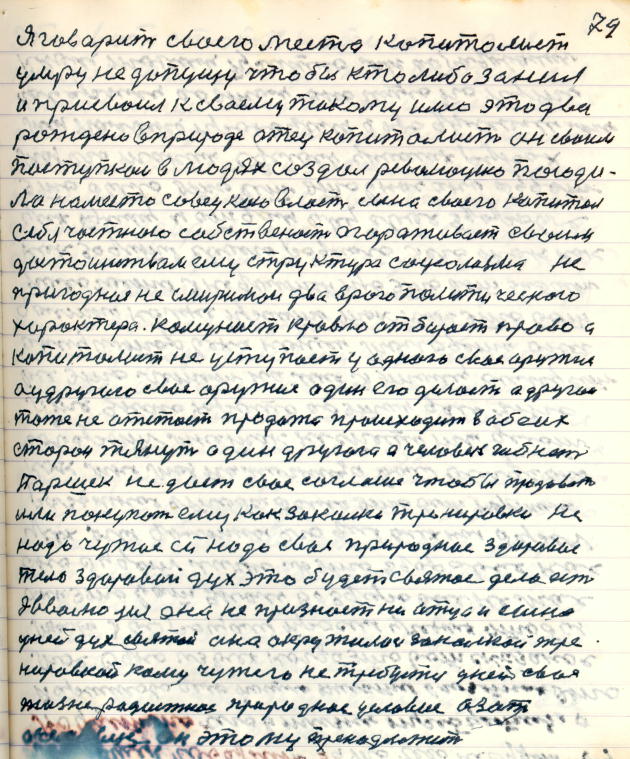 79
Я говарит своего места копитолист
умру не допущу чтобы кто либо занял
и присвоил к своему такому имю это два
рождено в природе отец копитолист он своим
поступком в людях создал револющию породи-
ла на место совецкою власть сына своего копитал
себя частною собственость огораживает своим
достоинтвам ему структура социолизма не
пригодная не смиримои два врога политического
характера. Комунист кровлю отбирает право а
копитолист не уступает у одного свае оружие
а у другого свае оружие один его делает а другое
тоже не отстает продажа происходит в обеих
сторон тянут один другого а человек гибнет
Паршек не дает свае согласие чтобы продават
или покупат ему как закалке тренировке не
надо чужое ей надо свае природнае здоровае
тело здоровый дух это будет святое дело ест
она не признает ни отца и сына
у ней дух святой она окружилаи закалкой тре
нировкой кому чужего не требуется у ней своя
жизне радистное природное условие
он этому преподложит